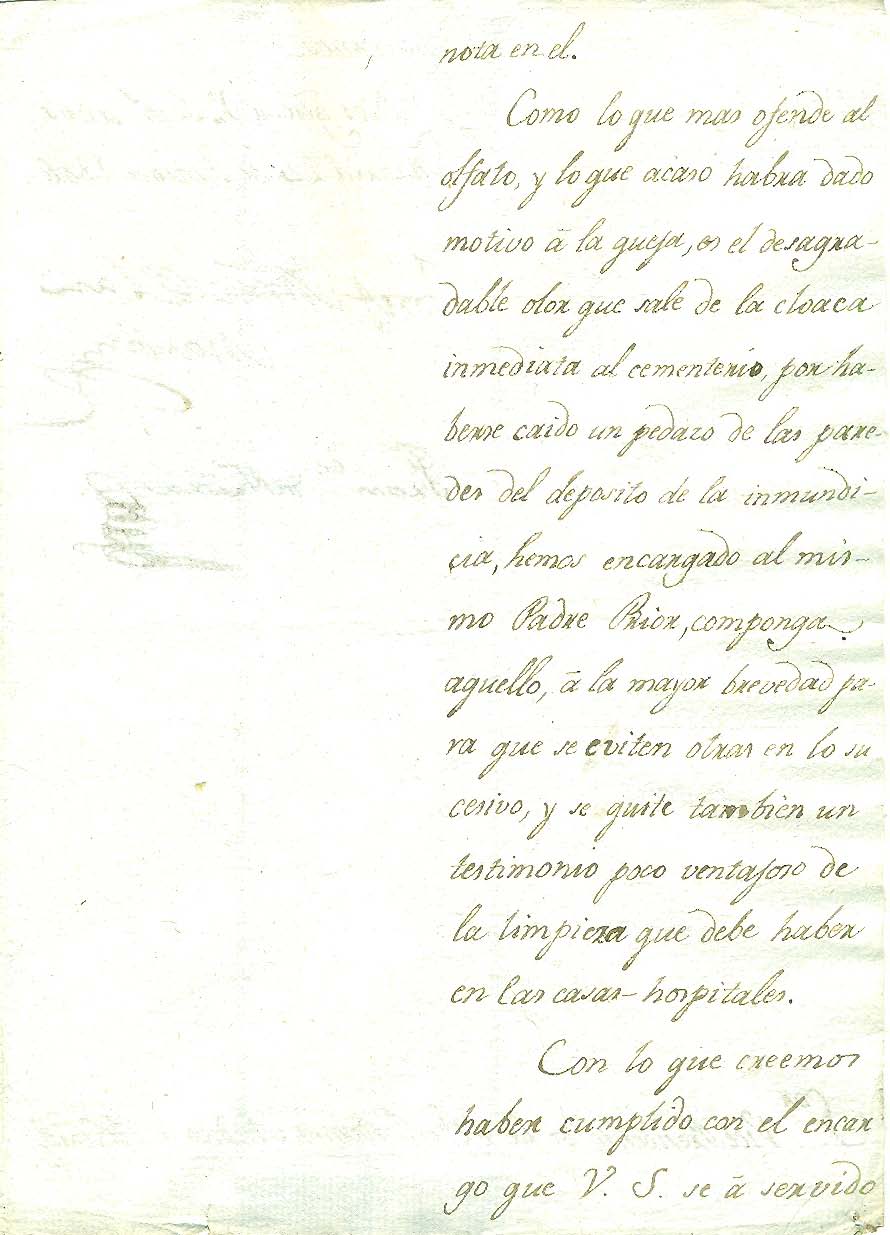 nota en el.
Como lo que mas ofende al
olfato, y lo que acaso habra dado
motivo â la queja, es el desagra-
dable olor que sale de la cloaca
inmediata al cementerio, por ha-
berse caido un pedazo de las pare-
des del deposito de la inmundi-
cia, hemos encargado al mis-
mo Padre Prior, componga
aquello, â la mayor brevedad pa-
ra que se eviten otras en lo su
cesivo, y se quite tambien un
testimonio poco ventajoso de
la limpieza que debe haber
en las casas-hospitales.
Con lo que creemos
haber cumplido con el encar
go que V. S. se â servido